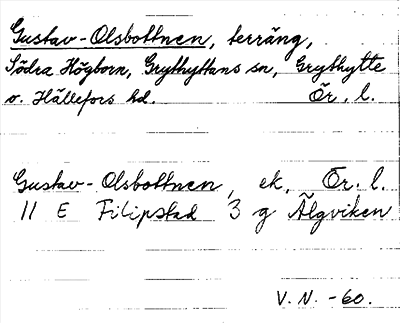 Gustav-Olsbottnen, terräng,
Södra Högborn, Grythyttans sn, Grythytte
o. Hällefors hd. Ör. l.
Gustav-Olsbottnen, ek, Ör. l.
11 E Filipstad 3 g Älgviken
V. N. -60.